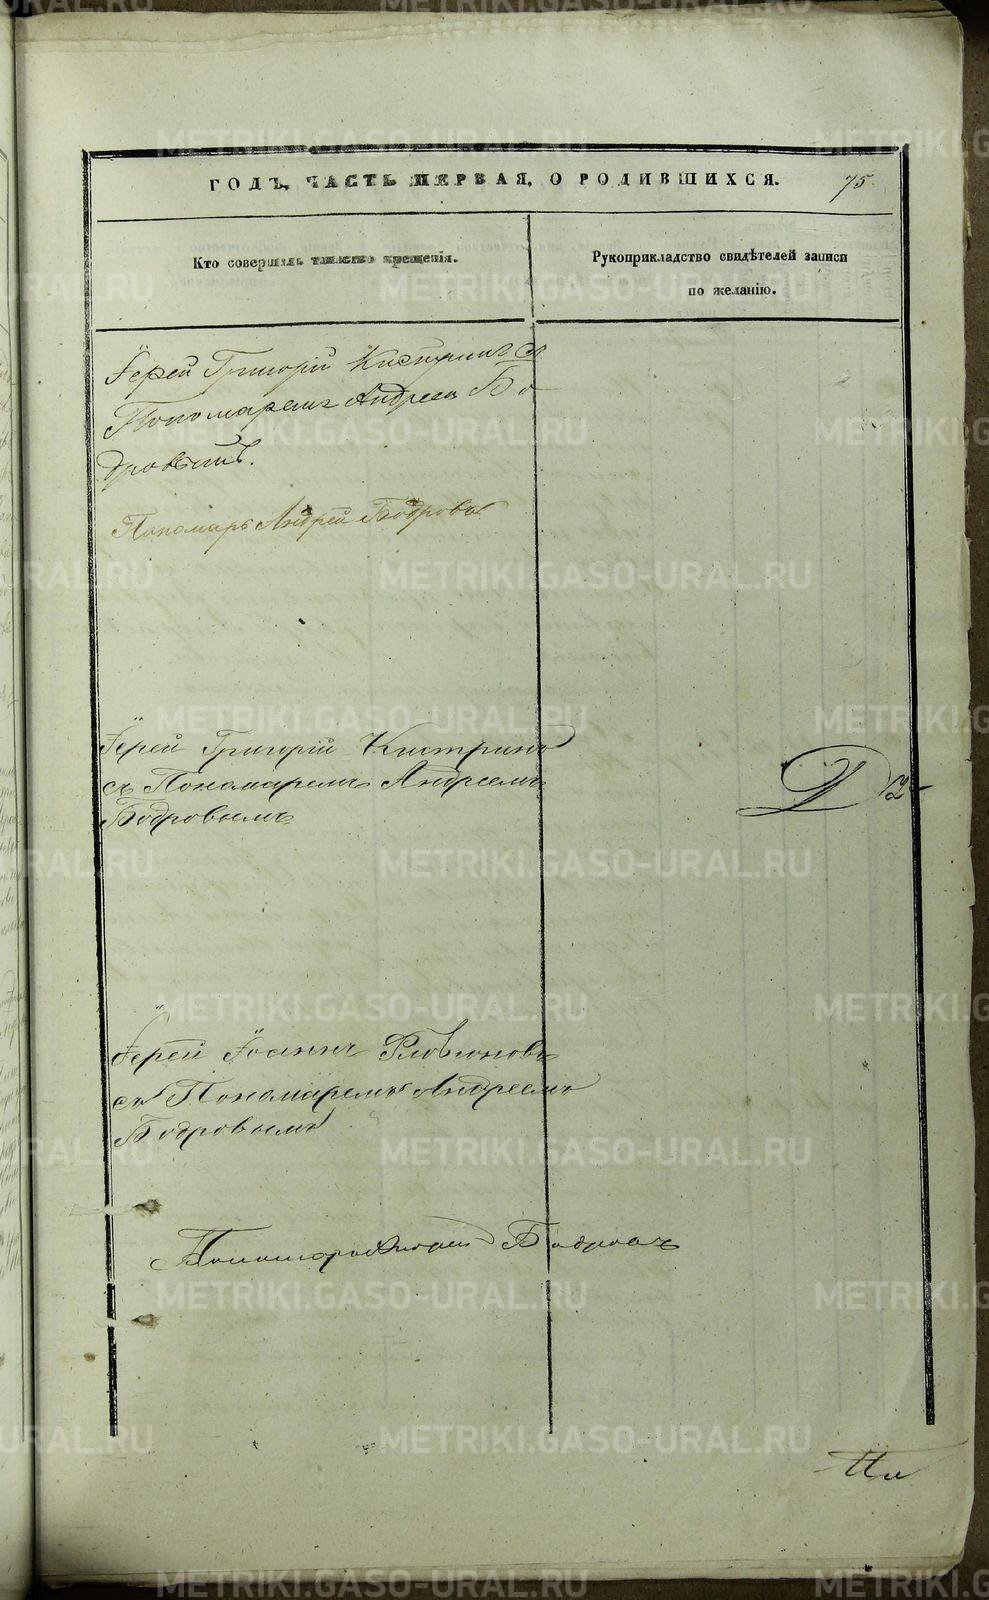 ГОДЪ, ЧАСТЬ ПЕРВАЯ, О РОДИВШИХСЯ.
75.
Кто совершалъ таинство крещенія.
Рукоприкладство свидѣтелей записи
по желанію.
Іерей Григорій Кистринъ съ
Пономаремъ Андреем Бо
дровымъ.
Пономарь Андрей Бодровъ
Іерей Григорій Кистринъ
съ Пономаремъ Андреемъ
Бодровымъ
Іерей Іоаннъ
съ Пономаремъ Андреемъ
Бодровымъ
Пономарь Андрей Бодровъ
METRIKI.GASO-URAL.RU